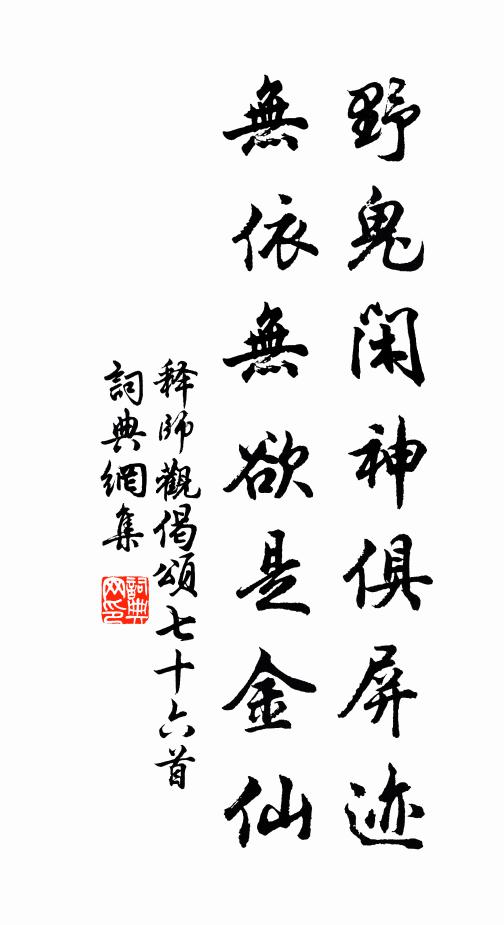 野鬼閑神俱屏迹
無依無欲是金仙
释師觀偈頌七十六首
詞典網集
詞典网印